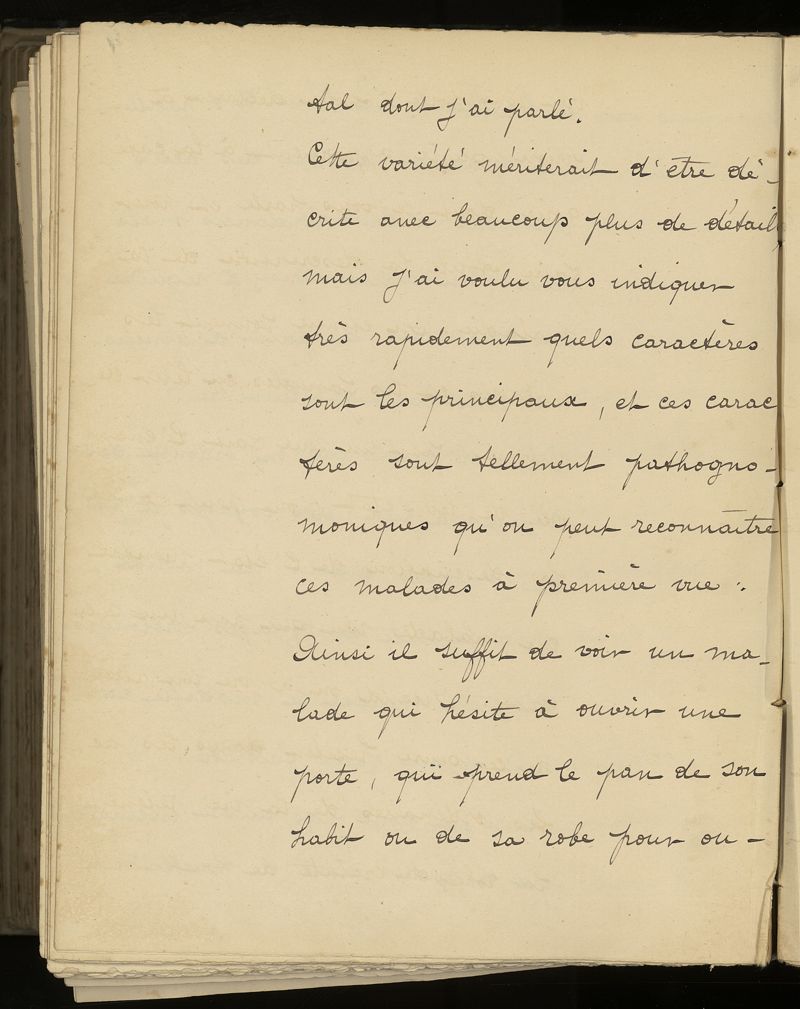 tal dont j'ai parlé.
Cette variété mériterait d'être dé-
crite avec beaucoup plus de détails
mais j'ai voulu vous indiquer
très rapidement quels caractères
sont les principaux, et ces carac
tères sont tellement pathogno-
moniques qu'on peut reconnaître
ces malades à première vue :
Ainsi il suffit de voir un ma-
lade qui hésite à ouvrir une
porte, qui prend le pan de son
habit ou de sa robe pour ou-